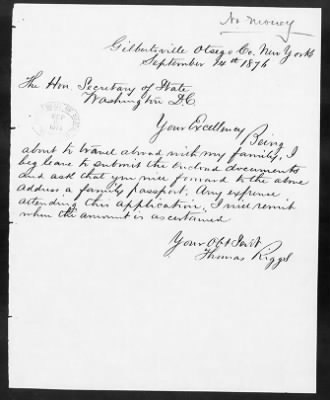 No money
Gilbertsville Otsego Co. New York
September 14th 1876
The Hon. Secretary of State
Washington D.C.
Your Excellency Being
about to travel abroad with my family, I
beg leave to submit the enclosed documents
and ask that you will forward to the above
address a family passport. Any expense
attending this application, I will remit
when the amount is ascertained
Your Obt Servt
Thomas Riggs